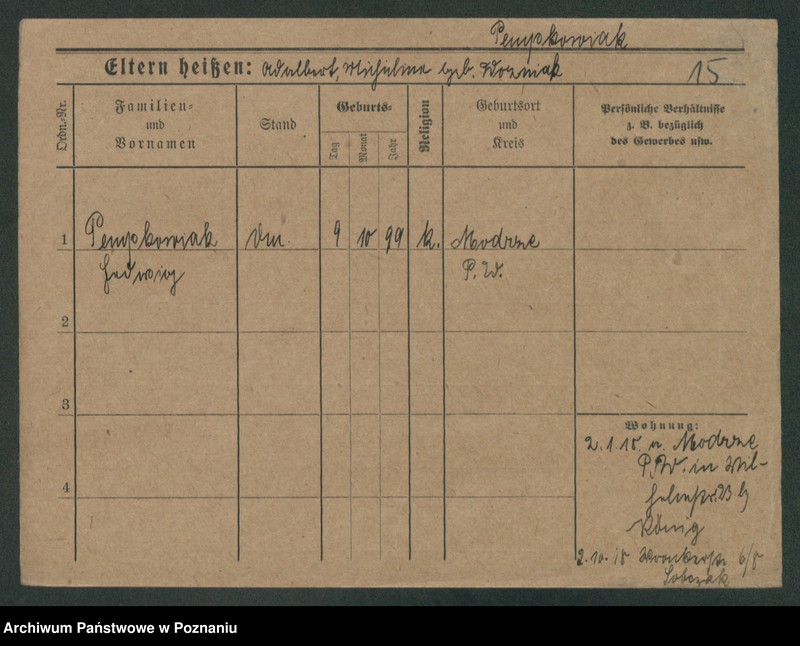 Pempkowiak
Eltern heißen: Adalbert, Michalina geb. Wozniak 15
Ordn.-Nr.
Familien-
und
Vornamen
Stand
Geburts-
Tag
Monat
Jahr
Religion
Geburtsort
und
Kreis
Persönliche Verhältnisse
z. B. bezüglich
des Gewerbes usw.
1 Pempkowiak Dm. 9 10 99 k. Modrze
Hedwig P. W.
2
3
4
Wohnung:
2.1.15 v. Modrze
P. W. in Wil-
helmstr. 23 b
König
2.10.15 Wronkerstr. 6/8
Sobczak
Archiwum Państwowe w Poznaniu